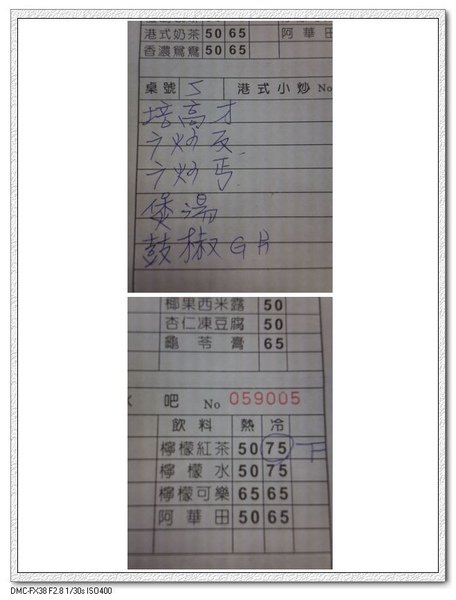 港式奶茶 50 65
香濃鴛鴦 50 65
阿華田
桌號 5 港式小炒 No
培高才
干炒反
干炒丐
煲湯
鼓椒GR
椰果西米露 50
杏仁凍豆腐 50
龜苓膏 65
吧 No 059005
飲料 熱 冷
檸檬紅茶 50 75 下
檸檬水 50 75
檸檬可樂 65 65
阿華田 50 65
DMC-FX38 F2.8 1/30s ISO400